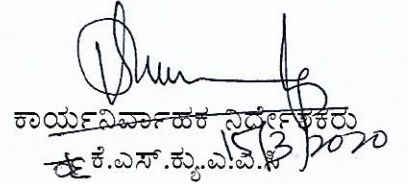 ಕಾರ್ಯನಿರ್ವಾಹಕ ನಿರ್ದೇಶಕರು
ಕೆ.ಎಸ್.ಕ್ಯು.ಎ.ಎ.ಸಿ
15/3/2020